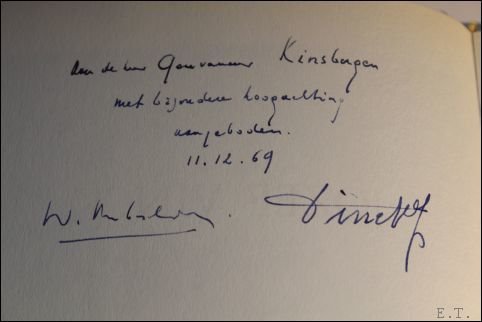 Aan de heer Gouverneur Kinsbergen
met bijzondere hoogachting
aangeboden.
11.12.69
W.
E.T.